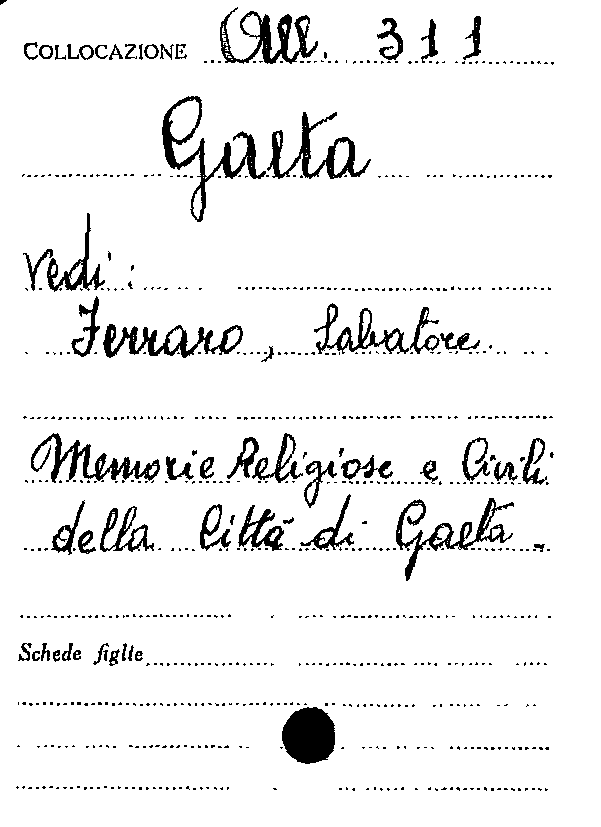 COLLOCAZIONE All. 311
Gaeta
Vedi:
Ferraro, Salvatore.
Memorie Religiose e Civili
della Città di Gaeta.
Schede figlie